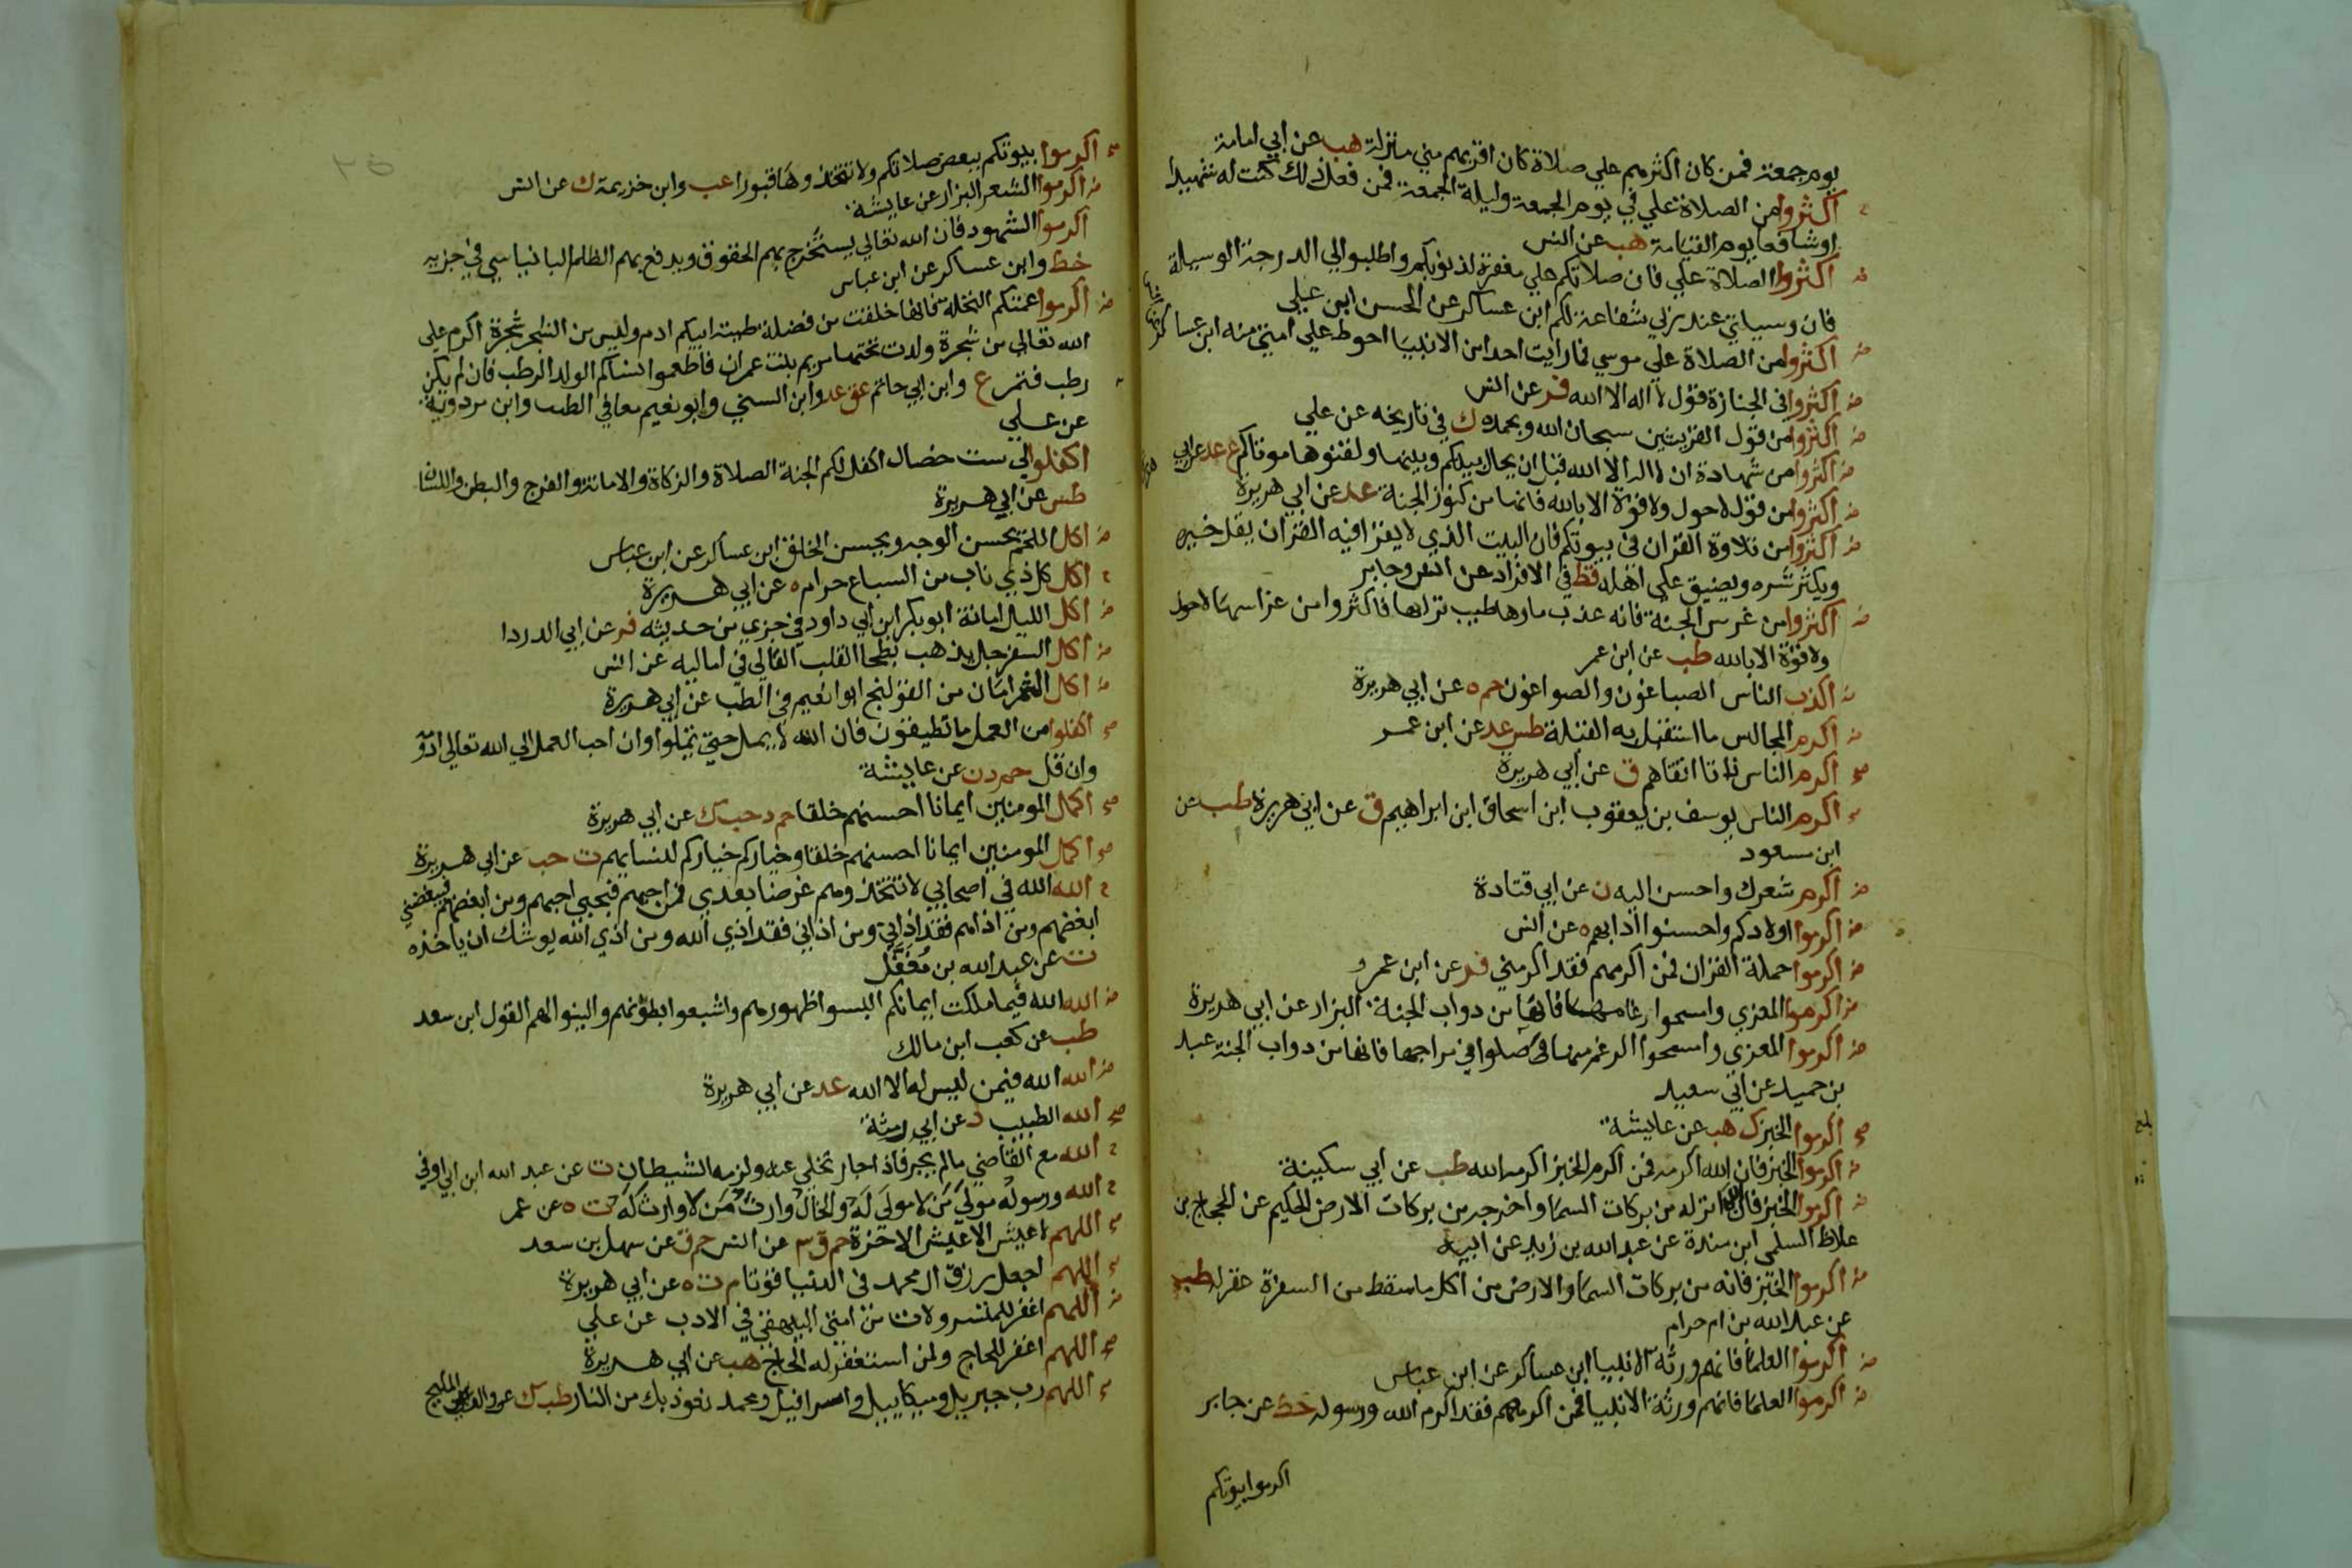 يوم جمعة فمن كان اكثرهم علي صلاة كان اقربهم مني منزلة هب عن ابي امامة
اكثروا من الصلاة علي في يوم الجمعة وليلة الجمعة فمن فعل ذلك كنت له شهيدا
او شافعا يوم القيامة هب عن انس
اكثروا الصلاة علي فان صلاتكم علي مغفرة لذنوبكم واطلبوا لي الدرجة الوسيلة
فان وسيلتي عند ربي شفاعة لكم ابن عساكر عن الحسن ابن علي
اكثروا من الصلاة علي موسي فما رايت احدا من الانبيا احوط علي امتي منه ابن عساكر
اكثروا في الجنازة قول لا اله الا الله فر عن انس
اكثروا من قول القرينتين سبحان الله وبحمده ك في تاريخه عن علي
اكثروا من شهادة ان لا اله الا الله قبل ان يحال بينكم وبينها ولقنوها موتاكم ع عد عن ابي
اكثروا من قول لا حول ولا قوة الا بالله فانها من كنوز الجنة عد عن ابي هريرة
اكثروا من تلاوة القران في بيوتكم فان البيت الذي لا يقرا فيه القران يقل خيره
ويكثر شره ويضيق علي اهله قط في الافراد عن انس وجابر
اكثروا من غرس الجنة فانه عذب ماوها طيب ترابها فاكثروا من غراسها لا حول
ولا قوة الا بالله طب عن ابن عمر
اكذب الناس الصباغون والصواغون حم ه عن ابي هريرة
اكرم المجالس ما استقبل به القبلة طس عد عن ابن عمر
اكرم الناس اتقاهم ق عن ابي هريرة
اكرم الناس يوسف بن يعقوب ابن اسحاق ابن ابراهيم ق عن ابي هريرة طب عن
ابن مسعود
اكرم شعرك واحسن اليه ن عن ابي قتادة
اكرموا اولادكم واحسنوا ادابهم ه عن انس
اكرموا حملة القران فمن اكرمهم فقد اكرمني فر عن ابن عمرو
اكرموا المعزي وامسحوا رغامها فانها من دواب الجنة البزار عن ابي هريرة
اكرموا المعزي وامسحوا الرغم منها وصلوا في مراحها فانها من دواب الجنة عبد
بن حميد عن ابي سعيد
اكرموا الخبز ك هب عن عايشة
اكرموا الخبز فان الله اكرمه فمن اكرم الخبز اكرمه الله طب عن ابي سكينة
اكرموا الخبز فان الله انزله من بركات السما واخرجه من بركات الارض الحكيم عن الحجاج بن
علاط السلمي ابن مندة عن عبد الله بن زيد عن ابيه
اكرموا الخبز فانه من بركات السما والارض من اكل ما سقط من السفرة غفر له طب
عن عبد الله بن ام حرام
اكرموا العلما فانهم ورثة الانبيا ابن عساكر عن ابن عباس
اكرموا العلما فانهم ورثة الانبيا فمن اكرمهم فقد اكرم الله ورسوله خط عن جابر
اكرموا بيوتكم
اكرموا بيوتكم ببعض صلاتكم ولا تتخذوها قبورا عب وابن خزيمة ك عن انس
اكرموا الشعر البزار عن عايشة
اكرموا الشهود فان الله تعالي يستخرج بهم الحقوق ويدفع بهم الظلم البانياسي في جزيه
خط وابن عساكر عن ابن عباس
اكرموا عمتكم النخلة فانها خلقت من فضلة طينة ابيكم ادم وليس من الشجر شجرة اكرم علي
الله تعالي من شجرة ولدت تحتها مريم بنت عمران فاطعموا نساكم الولد الرطب فان لم يكن
رطب فتمر ع وابن ابي حاتم عق عد وابن السني وابو نعيم معا في الطب وابن مردويه
عن علي
اكفلوا لي ست خصال اكفل لكم الجنة الصلاة والزكاة والامانة والفرج والبطن واللسان
طس عن ابي هريرة
اكل اللحم يحسن الوجه ويحسن الخلق ابن عساكر عن ابن عباس
اكل كل ذي ناب من السباع حرام ه عن ابي هريرة
اكل الليل امانة ابو بكر ابن ابي داود في جزي من حديثه فر عن ابي الدردا
اكل السفرجل يذهب بطخا القلب القالي في اماليه عن انس
اكل الشمر امان من القولنج ابو نعيم في الطب عن ابي هريرة
اكلفوا من العمل ما تطيقون فان الله لا يمل حتي تملوا وان احب العمل الي الله تعالي ادومه
وان قل حم د ن عن عايشة
اكمل المومنين ايمانا احسنهم خلقا حم د حب ك عن ابي هريرة
اكمل المومنين ايمانا احسنهم خلقا وخياركم خياركم لنسايهم ت حب عن ابي هريرة
الله الله في اصحابي لا تتخذوهم غرضا بعدي فمن احبهم فبحبي احبهم ومن ابغضهم فببغضي
ابغضهم ومن اذاهم فقد اذاني ومن اذاني فقد اذي الله ومن اذي الله يوشك ان ياخذه
ت عن عبد الله بن مغفل
الله الله فيما ملكت ايمانكم البسوا ظهورهم واشبعوا بطونهم والينوا لهم القول ابن سعد
طب عن كعب ابن مالك
الله الله فيمن ليس له الا الله عد عن ابي هريرة
الله الطبيب د عن ابي رمثة
الله مع القاضي ما لم يجر فاذا جار تخلي عنه ولزمه الشيطان ت عن عبد الله ابن ابي اوفي
الله ورسوله مولي من لا مولي له والخال وارث من لا وارث له ت ه عن عمر
اللهم لا عيش الا عيش الاخرة حم ق ٣ عن انس حم ق عن سهل بن سعد
اللهم اجعل رزق ال محمد في الدنيا قوتا م ت ه عن ابي هريرة
اللهم اغفر للمتسرولات من امتي البيهقي في الادب عن علي
اللهم اغفر للحاج ولمن استغفر له الحاج هب عن ابي هريرة
اللهم رب جبريل وميكاييل واسرافيل ومحمد نعوذ بك من النار طب ك عن والد ابي المليح